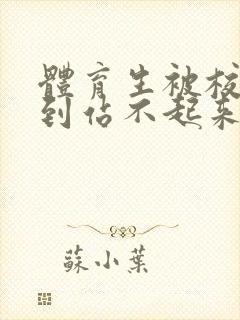 體育生被校
到佔不起来
蘇小葉